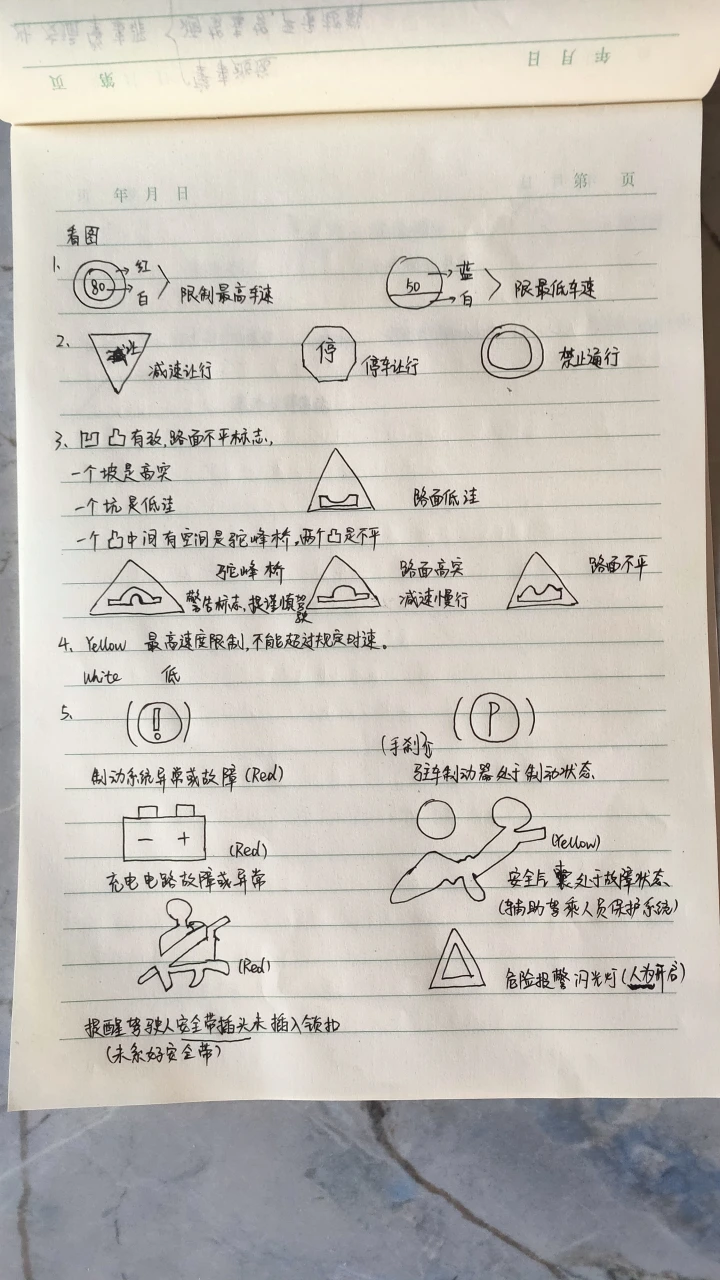 页 第 日 月 年
年 月 日 第 页
看图
1、 80 红 白 限制最高车速 50 蓝 白 限最低车速
2、 减速让行 停 停车让行 禁止通行
3、凹凸有致,路面不平标志,
一个坡是高突
一个坑是低洼 路面低洼
一个凸中间有空间是驼峰桥,两个凸是不平
驼峰桥 路面高突 路面不平
警告标志,提谨慎驾驶 减速慢行
4、Yellow 最高速度限制,不能超过规定时速。
White 低
5、 (!) (P)
(手刹)
制动系统异常或故障(Red) 驻车制动器处于制动状态
- + (Red) (Yellow)
充电电路故障或异常 安全气囊处于故障状态
(辅助驾乘人员保护系统)
(Red) 危险报警闪光灯(人为开启)
提醒驾驶人安全带插头未插入锁扣
(未系好安全带)